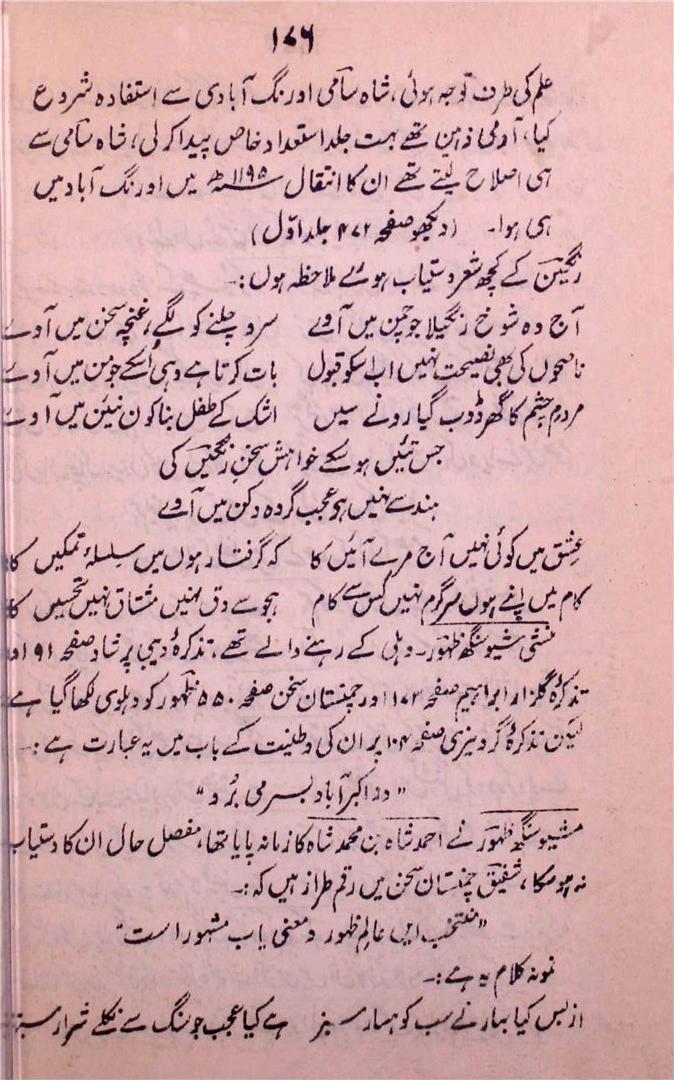 ۱۷۶
علم کی طرف توجہ ہوئی، شاہ سامی اورنگ آبادی سے استفادہ شروع
کیا، آدمی ذہین تھے بہت جلد استعداد خاص پیدا کر لی، شاہ سامی سے
ہی اصلاح لیتے تھے ان کا انتقال ۱۱۹۵ھ میں اورنگ آباد میں
ہی ہوا۔ (دیکھو صفحہ ۴۷۲ جلد اوّل)
رنگین کے کچھ شعر دستیاب ہوئے ملاحظہ ہوں:۔
آج وہ شوخ رنگیلا جو چمن میں آوے سرو جلنے کو لگے، غنچہ سخن میں آوے
ناصحوں کی بھی نصیحت نہیں اب اسکو قبول بات کرتا ہے وہی اُسکے جو من میں آوے
مردمِ چشم کا گھر ڈوب گیا رونے سیں اشک کے طفل بنا کون نین میں آوے
جس تئیں ہوئے خواہش سخنِ رنگیں کی
ہند سے نہیں ہو عجب گر وہ دکن میں آوے
عشق میں کوئی نہیں آج مرے آئیں کا کہ گرفتار ہوں میں سلسلۂ تمکیں کا
کام میں اپنے ہوں سرگرم نہیں کس سے کام ہجو سے دق نہیں مشتاق نہیں تحسیں کا
منشی شیو سنگھ ظہور۔ دہلی کے رہنے والے تھے، تذکرۂ دیبی پرشاد صفحہ ۹۱ اور
تذکرۂ گلزار ابراہیم صفحہ ۱۷۳ اور چمنستان سخن صفحہ ۵۵۰ ظہور کو دہلوی لکھا گیا ہے
لیکن تذکرۂ گردیزی صفحہ ۱۰۴ پر ان کی وطنیت کے باب میں یہ عبارت ہے:۔
"در اکبر آباد بسر می بُرد"
شیو سنگھ ظہور نے احمد شاہ بن محمد شاہ کا زمانہ پایا تھا، مفصل حال ان کا دستیاب
نہ ہو سکا، شفیق چمنستان سخن میں رقم طراز ہیں کہ:۔
"منتخب ایں عالم ظہور و معنی یاب مشہور است"
نمونہ کلام یہ ہے:۔
از بس کیا بہار نے سب کوہسار سبز ہے کیا عجب جو سنگ سے نکلے شرار سبز